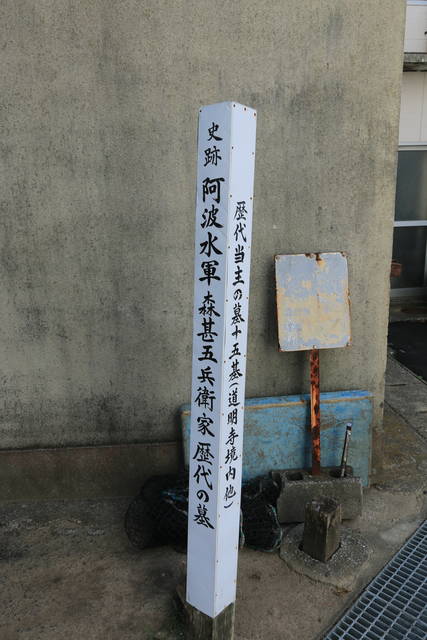 史跡 阿波水軍 森甚五兵衛家 歴代の墓
歴代当主の墓十五基(道明寺境内他)